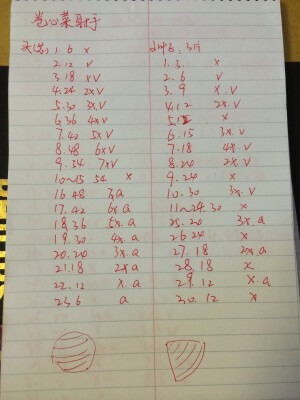 卷心菜射手
1. 6 x
2. 12 v
3. 18 xv
4. 24 2xv
5. 30 3x.v
6. 36 4xv
7. 42 5xv
8. 48 6xv
9. 54 7xv
10~15 54 x.
16 48 7.a
17. 42 6x.a
18. 36 5x.a
19. 30 4x.a
20. 24 3x.a
21. 18 2xa
22. 12 x.a
23. 6 a
1. 3. x
2. 6 v
3. 9 x.v
4. 12 2x.v
5. 12 x
6. 15 3x.v
7. 18 4x.v
8. 24 2x.v
9. 24 x
10. 30 3x.v
11~24. 30 x
25. 24 3x.a
26 24 x
27. 18 2x.a
28. 18 x
29. 12 x.a
30. 12 x